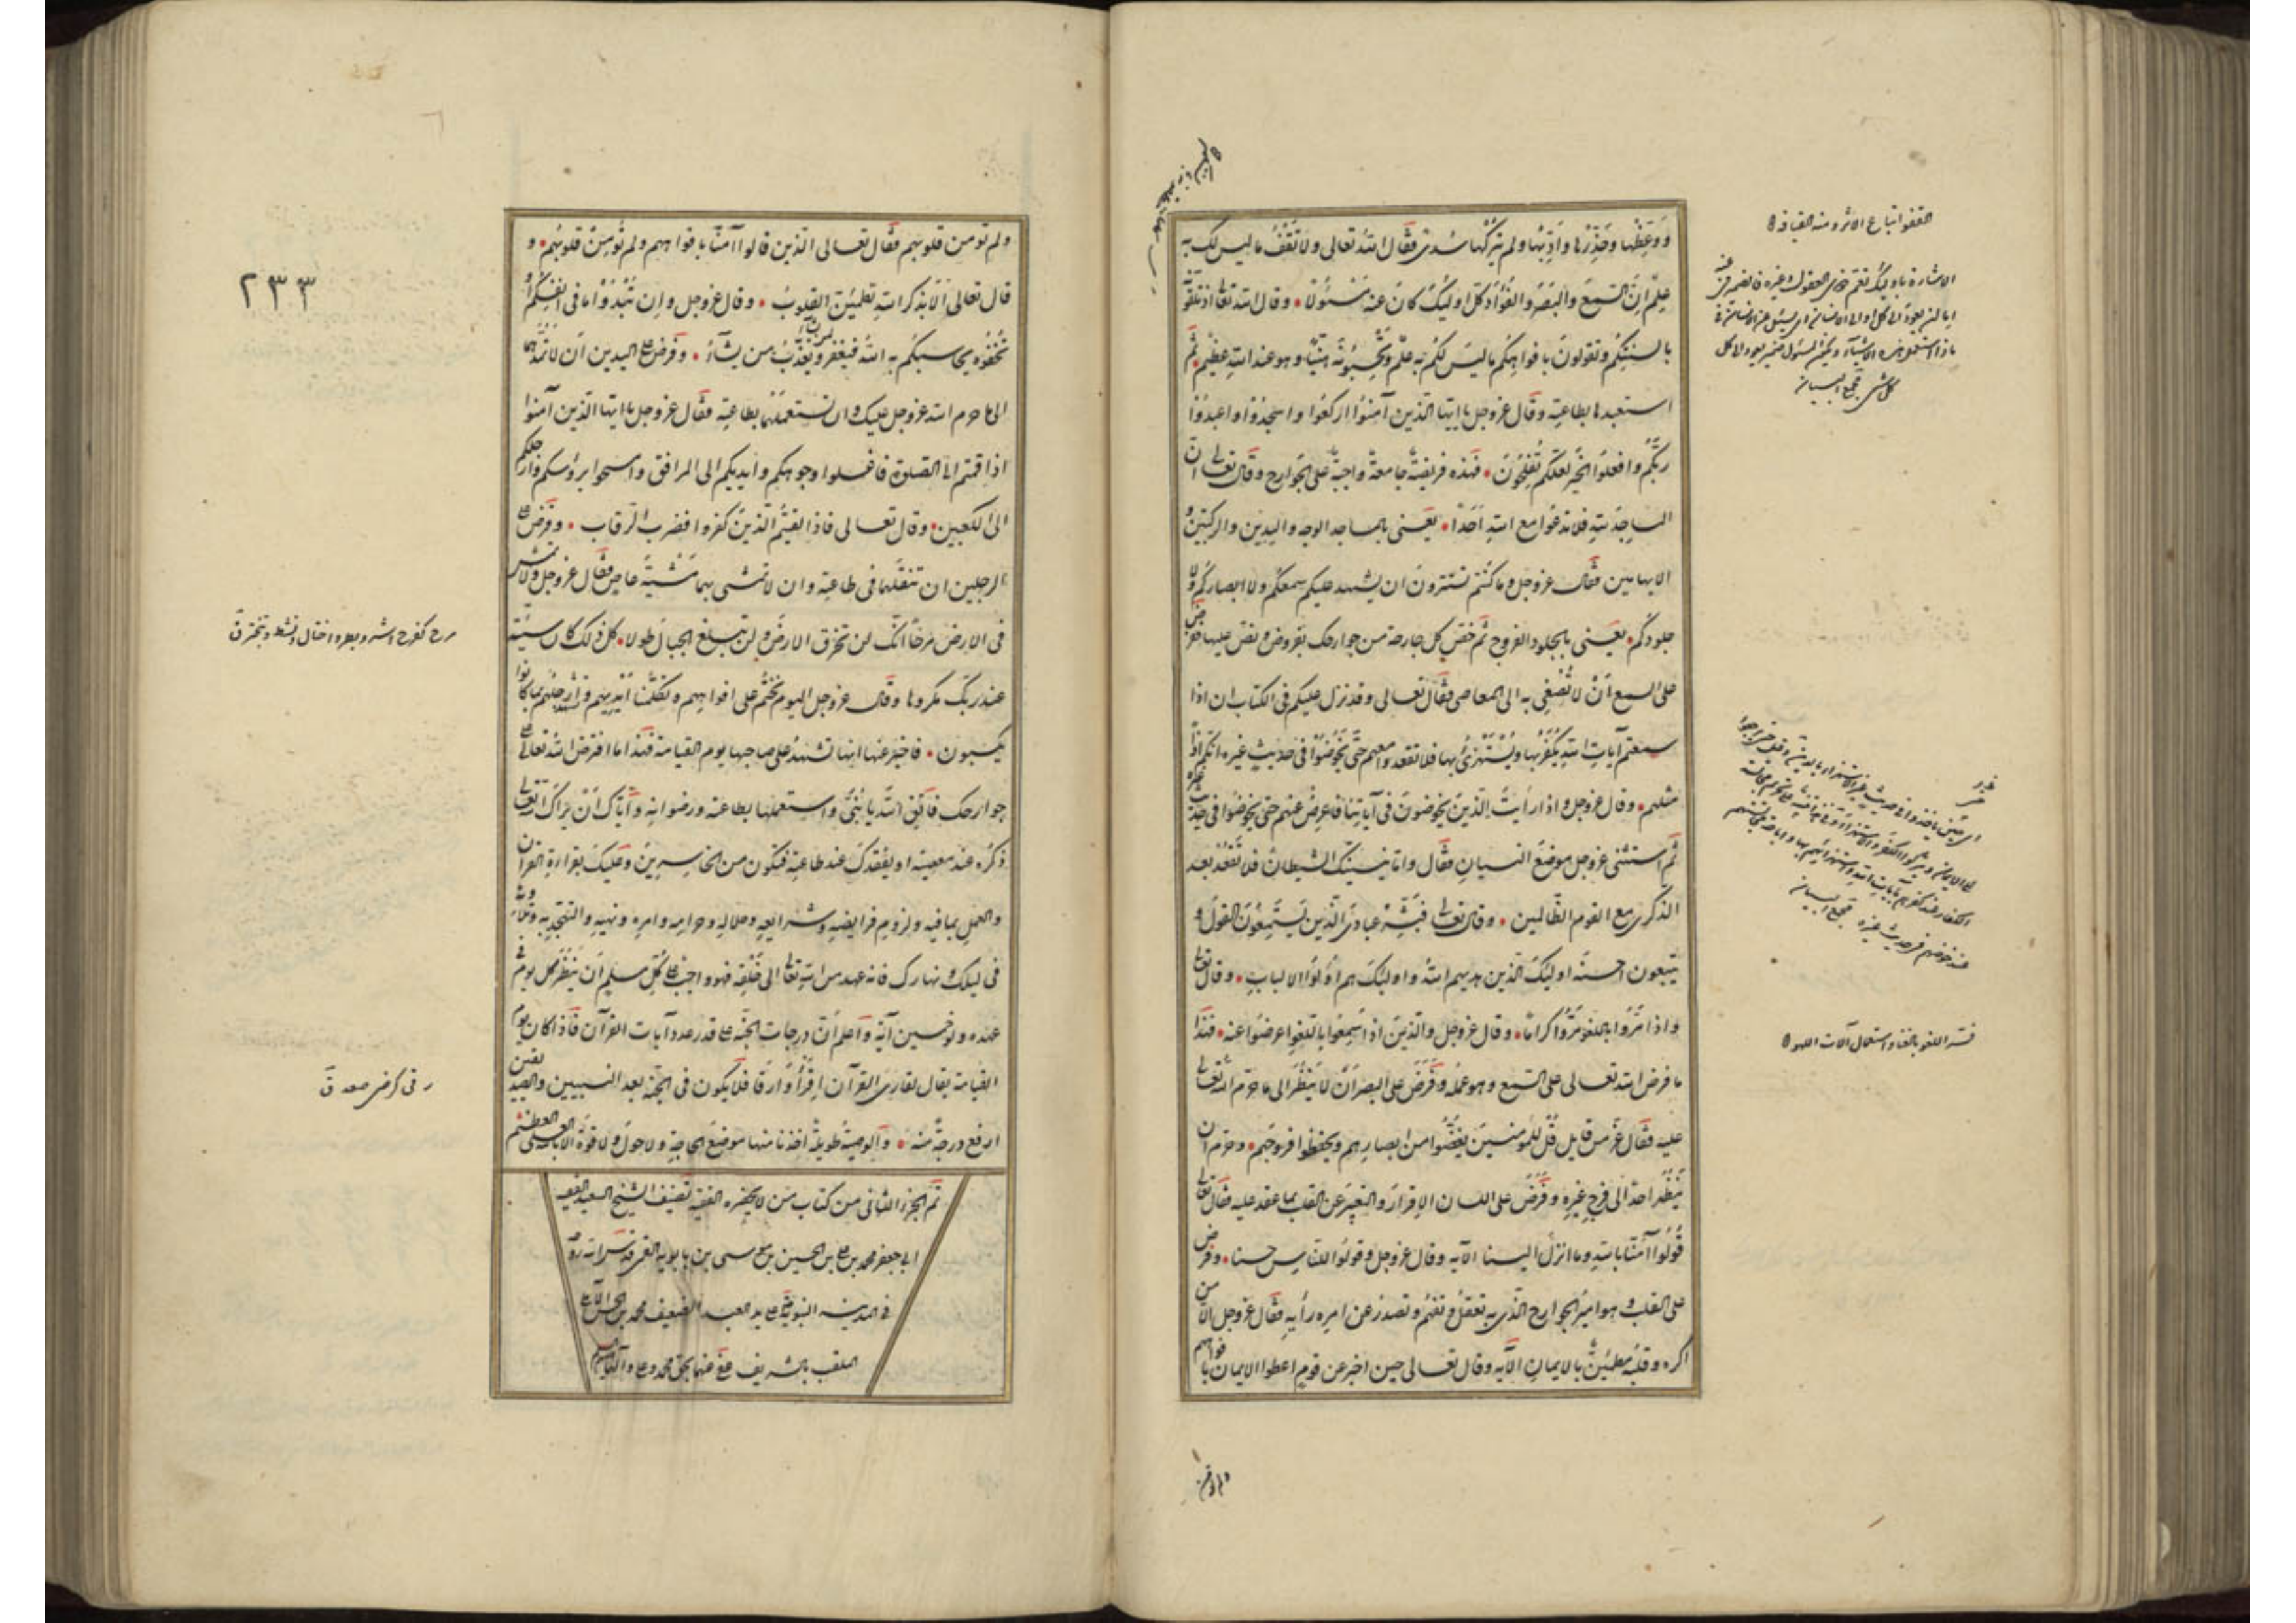 ووعظها وحذرها وادبها ولم يتركها سدى فقال الله تعالى ولا تقف ما ليس لك به
علم ان السمع والبصر والفؤاد كل اولئك كان عنه مسئولا وقال الله تعالى اذ تلقونه
بالسنتكم وتقولون بافواهكم ما ليس لكم به علم وتحسبونه هينا وهو عند الله عظيم ثم
استعبدها بطاعته وقال عزوجل يا ايها الذين آمنوا اركعوا واسجدوا واعبدوا
ربكم وافعلوا الخير لعلكم تفلحون فهذه فريضة جامعة واجبة على الجوارح وقال تعالى ان
المساجد لله فلا تدعوا مع الله احدا يعنى بالمساجد الوجه واليدين والركبتين و
الابهامين فقال عزوجل وما كنتم تستترون ان يشهد عليكم سمعكم ولا ابصاركم ولا
جلودكم يعنى بالجلود الفروج ثم خص كل جارحة من جوارحك بفرض ونص عليها ففرض
على السمع ان لا تصغى به الى المعاصى فقال تعالى وقد نزل عليكم فى الكتاب ان اذا
سمعتم آيات الله يكفر بها ويستهزئ بها فلا تقعدوا معهم حتى يخوضوا فى حديث غيره انكم اذا
مثلهم وقال عزوجل واذا رأيت الذين يخوضون فى آياتنا فاعرض عنهم حتى يخوضوا فى حديث غيره
ثم استثنى عزوجل موضع النسيان فقال واما ينسينك الشيطان فلا تقعد بعد
الذكرى مع القوم الظالمين وقال تعالى فبشر عبادى الذين يستمعون القول و
يتبعون احسنه اولئك الذين هديهم الله واولئك هم اولوا الالباب وقال تعالى
واذا مروا باللغو مروا كراما وقال عزوجل والذين اذا سمعوا باللغو اعرضوا عنه فهذا
ما فرض الله تعالى على السمع وهو عمله وفرض على البصر ان لا ينظر الى ما حرم الله تعالى
عليه فقال عز من قايل قل للمؤمنين يغضوا من ابصارهم ويحفظوا فروجهم وحرم ان
ينظر احد الى فرج غيره وفرض على اللسان الاقرار والتعبير عن القلب بما عقد عليه فقال تعالى
قولوا آمنا بالله وما انزل الينا الآيه وقال عزوجل وقولوا للناس حسنا وفرض
على القلب وهو امير الجوارح الذى به تعقل وتفهم وتصدر عن امره ورأيه فقال عزوجل الا من
اكره وقلبه مطمئن بالايمان الآيه وقال تعالى حين اخبر عن قوم اعطوا الايمان بافواههم
القفو اتباع الاثر ومنه القيافة
مجمع البيان
مجمع البيان
فسر اللغو بالغنا واستعمال آلات اللهو
ولم تؤمن قلوبهم فقال تعالى الذين قالوا آمنا بافواههم ولم تؤمن قلوبهم و
قال تعالى الا بذكر الله تطمئن القلوب وقال عزوجل وان تبدوا ما فى انفسكم او
تخفوه يحاسبكم به الله فيغفر لمن يشاء ويعذب من يشآء وفرض على اليدين ان لا تمدهما
الى ما حرم الله عزوجل عليك وان تستعملهما بطاعته فقال عزوجل يا ايها الذين آمنوا
اذا قمتم الى الصلوة فاغسلوا وجوهكم وايديكم الى المرافق وامسحوا برؤسكم وارجلكم
الى الكعبين وقال تعالى فاذا لقيتم الذين كفروا فضرب الرقاب وفرض على
الرجلين ان تنقلهما فى طاعته وان لا تمشى بهما مشية عاص فقال عزوجل ولا تمش
فى الارض مرحا انك لن تخرق الارض ولن تبلغ الجبال طولا كل ذلك كان سيئه
عند ربك مكروها وقال عزوجل اليوم نختم على افواههم وتكلمنا ايديهم وتشهد ارجلهم بما كانوا
يكسبون فاخبر عنها انها تشهد على صاحبها يوم القيامة فهذا ما افترض الله تعالى على
جوارحك فاتق الله يا بنى واستعملها بطاعته ورضوانه واياك ان يراك الله تعالى
ذكره عند معصيته او يفقدك عند طاعته فتكون من الخاسرين وعليك بقراءة القرآن
والعمل بما فيه ولزوم فرايضه وشرايعه وحلاله وحرامه وامره ونهيه والتهجد به وتلاوته
فى ليلك ونهارك فانه عهد من الله تعالى الى خلقه فهو واجب على كل مسلم ان ينظر كل يوم فى
عهده ولو خمسين آية واعلم ان درجات الجنة على قدر عدد آيات القرآن فاذا كان يوم
القيامة يقال لقارئ القرآن اقرأ وارق فلا يكون فى الجنة بعد النبيين والصديقين
ارفع درجة منه والوصية طويلة اخذنا منها موضع الحاجة ولا حول ولا قوة الا بالله العلى العظيم
تم الجزء الثانى من كتاب من لا يحضره الفقيه تصنيف الشيخ السعيد الفقيه
ابى جعفر محمد بن على بن الحسين بن موسى بن بابويه القمى قدس الله روحه
فى المدينه النبويه على يد العبد الضعيف محمد بن
الملقب بالشريف عفى عنهما بحق محمد وعلى وآلهما
٢٣٣
مرح كفرح اشر وبطر واختال ونشط وتبختر ق
رقى كرضى صعد ق